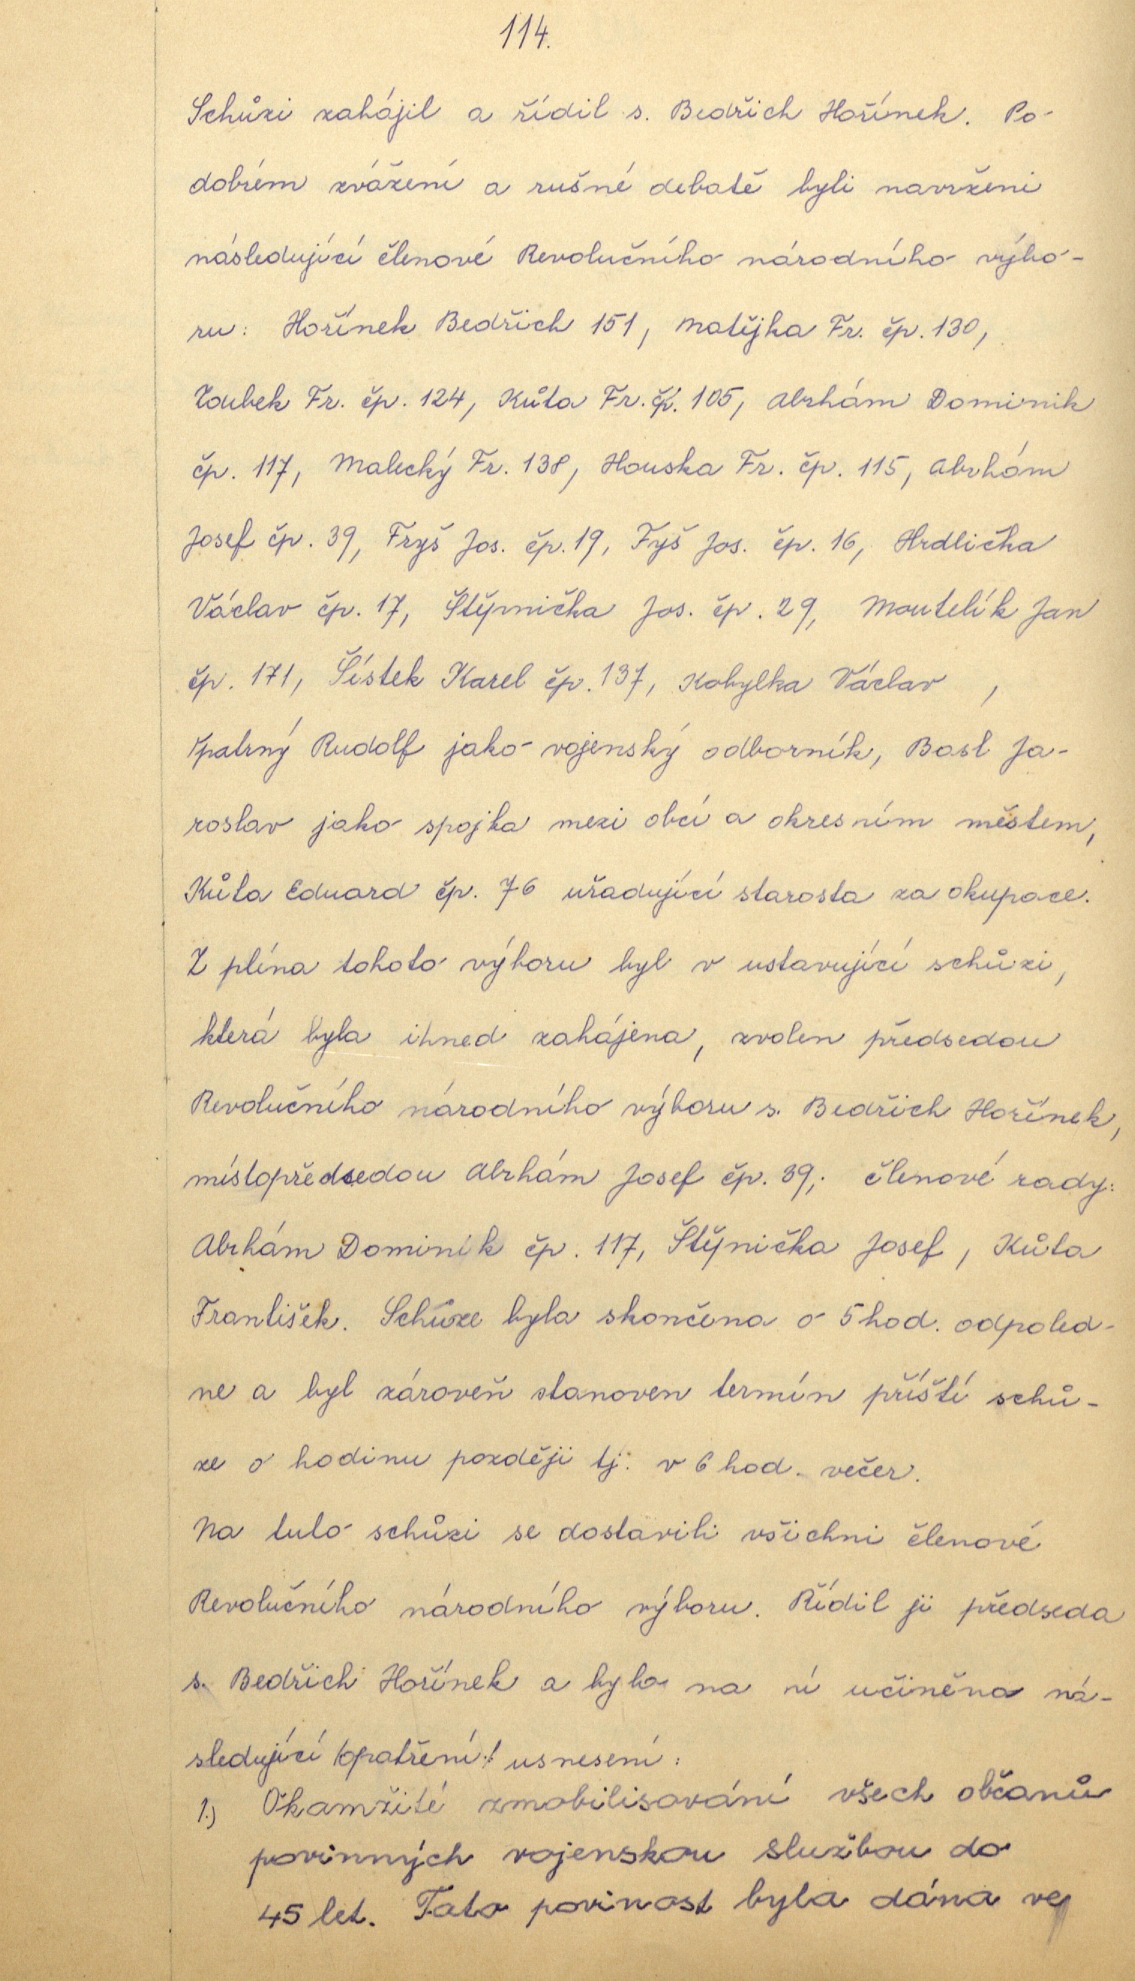 114.
Schůzi zahájil a řídil s. Bedřich Hořínek. Po
dobrém zvážení a rušné debatě byli navrženi
následující členové Revolučního národního výbo-
ru: Hořínek Bedřich 151, Matějka Fr. čp. 130,
Zoubek Fr. čp. 124, Kůta Fr. čp. 105, Abrhám Dominik
čp. 117, Malecký Fr. 138, Houska Fr. čp. 115, Abrhám
Josef čp. 39, Fryš Jos. čp. 19, Fyš Jos. čp. 16, Hrdlička
Václav čp. 17, Štýnička Jos. čp. 29, Moutelík Jan
čp. 171, Šístek Karel čp. 137, Kobylka Václav ,
Špatný Rudolf jako vojenský odborník, Basl Ja-
roslav jako spojka mezi obcí a okresním městem,
Kůta Eduard čp. 76 uřadující starosta za okupace.
Z pléna tohoto výboru byl v ustavující schůzi,
která byla ihned zahájena, zvolen předsedou
Revolučního národního výboru s. Bedřich Hořínek,
místopředsedou Abrhám Josef čp. 39; členové rady:
Abrhám Dominik čp. 117, Štýnička Josef, Kůta
František. Schůze byla skončena o 5 hod. odpoled-
ne a byl zároveň stanoven termín příští schů-
ze o hodinu později tj. v 6 hod. večer.
Na tuto schůzi se dostavili všichni členové
Revolučního národního výboru. Řídil ji předseda
s. Bedřich Hořínek a byla na ní učiněna ná-
sledující /opatření:/ usnesení:
1.) Okamžité zmobilisování všech občanů
povinných vojenskou službou do
45 let. Tato povinost byla dána ve